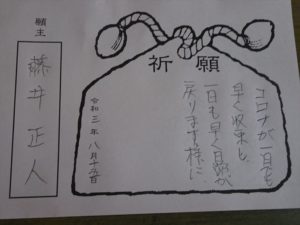 祈願
コロナが一日でも
早く収束し
一日も早く日常が
戻ります様に
令和三年八月十五日
願主
藤井正人